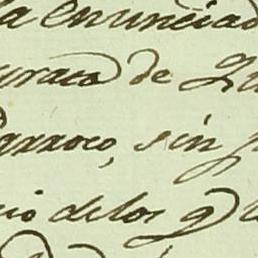 la enunciad
curato de
Parroco, sin p
io de los q